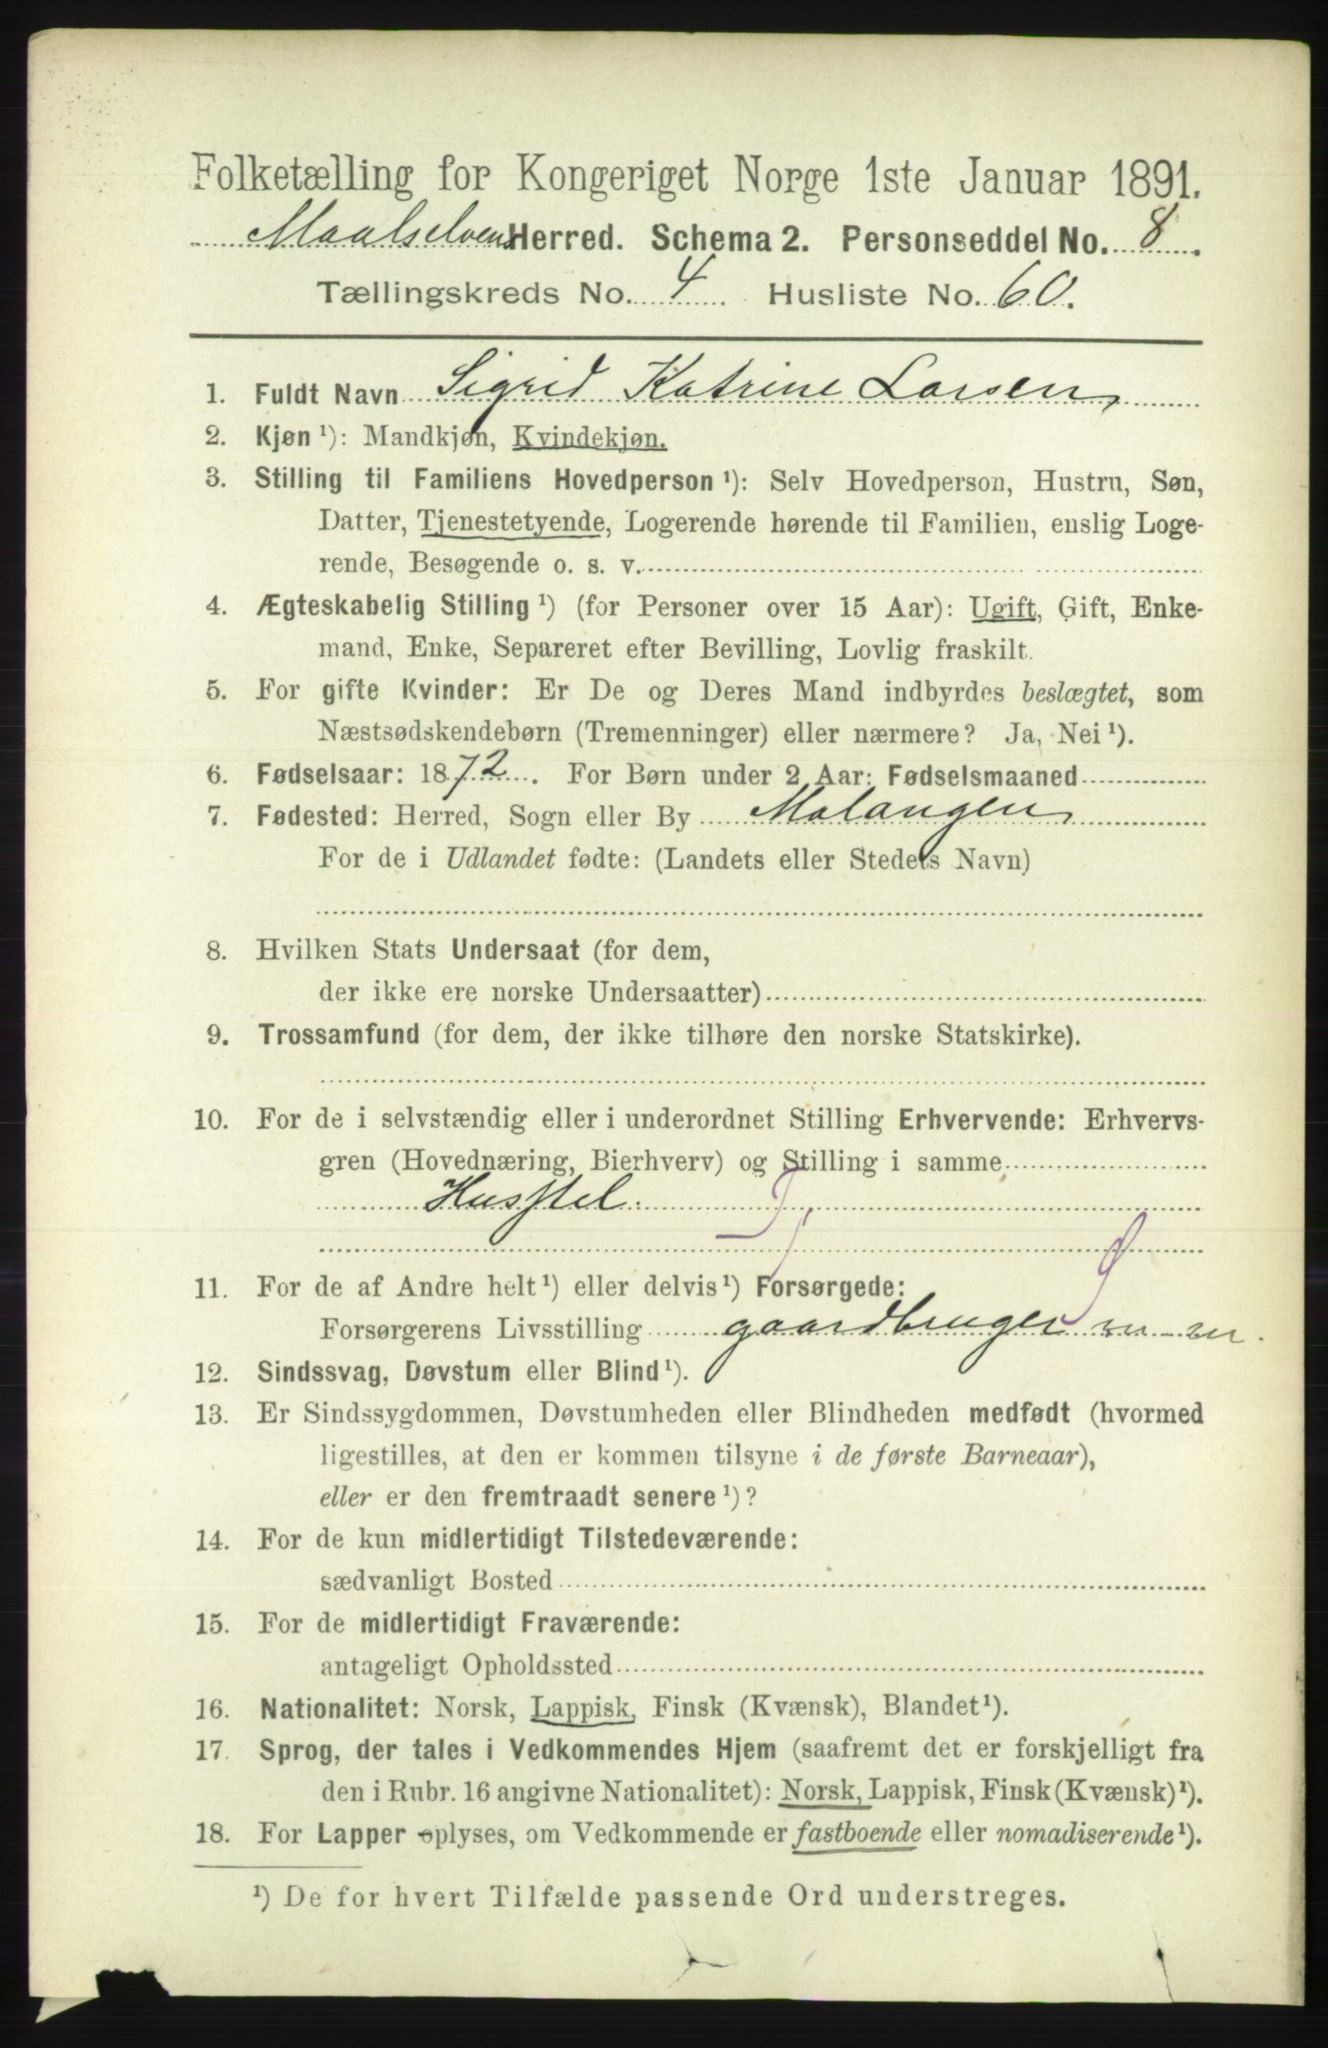 Folketælling for Kongeriget Norge 1ste Januar 1891.
Maalselvens Herred. Schema 2. Personseddel No. 8.
Tællingskreds No. 4 Husliste No. 60.
1. Fuldt Navn Sigrid Katrine Larsen,
2. Kjøn ¹): Mandkjøn, Kvindekjøn.
3. Stilling til Familiens Hovedperson ¹): Selv Hovedperson, Hustru, Søn,
Datter, Tjenestetyende, Logerende hørende til Familien, enslig Loge-
rende, Besøgende o. s. v.
4. Ægteskabelig Stilling ¹) (for Personer over 15 Aar): Ugift, Gift, Enke-
mand, Enke, Separeret efter Bevilling, Lovlig fraskilt.
5. For gifte Kvinder: Er De og Deres Mand indbyrdes beslægtet, som
Næstsødskendebørn (Tremenninger) eller nærmere? Ja, Nei ¹).
6. Fødselsaar: 1872. For Børn under 2 Aar: Fødselsmaaned
7. Fødested: Herred, Sogn eller By Malangen
For de i Udlandet fødte: (Landets eller Stedets Navn)
8. Hvilken Stats Undersaat (for dem,
der ikke ere norske Undersaatter)
9. Trossamfund (for dem, der ikke tilhøre den norske Statskirke).
10. For de i selvstændig eller i underordnet Stilling Erhvervende: Erhvervs-
gren (Hovednæring, Bierhverv) og Stilling i samme
Husstel. T,
11. For de af Andre helt ¹) eller delvis ¹) Forsørgede:
Forsørgerens Livsstilling gaardbruger
12. Sindssvag, Døvstum eller Blind ¹).
13. Er Sindssygdommen, Døvstumheden eller Blindheden medfødt (hvormed
ligestilles, at den er kommen tilsyne i de første Barneaar),
eller er den fremtraadt senere ¹)?
14. For de kun midlertidigt Tilstedeværende:
sædvanligt Bosted
15. For de midlertidigt Fraværende:
antageligt Opholdssted
16. Nationalitet: Norsk, Lappisk, Finsk (Kvænsk), Blandet ¹).
17. Sprog, der tales i Vedkommendes Hjem (saafremt det er forskjelligt fra
den i Rubr. 16 angivne Nationalitet): Norsk, Lappisk, Finsk (Kvænsk) ¹).
18. For Lapper oplyses, om Vedkommende er fastboende eller nomadiserende ¹).
¹) De for hvert Tilfælde passende Ord understreges.